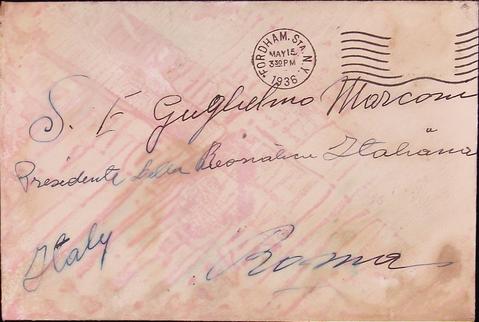 FORDHAM. STA. N.Y.
MAY 15
3 30 PM
1936
S. E Guglielmo Marconi
Presidente della Italiana
Italy
Roma